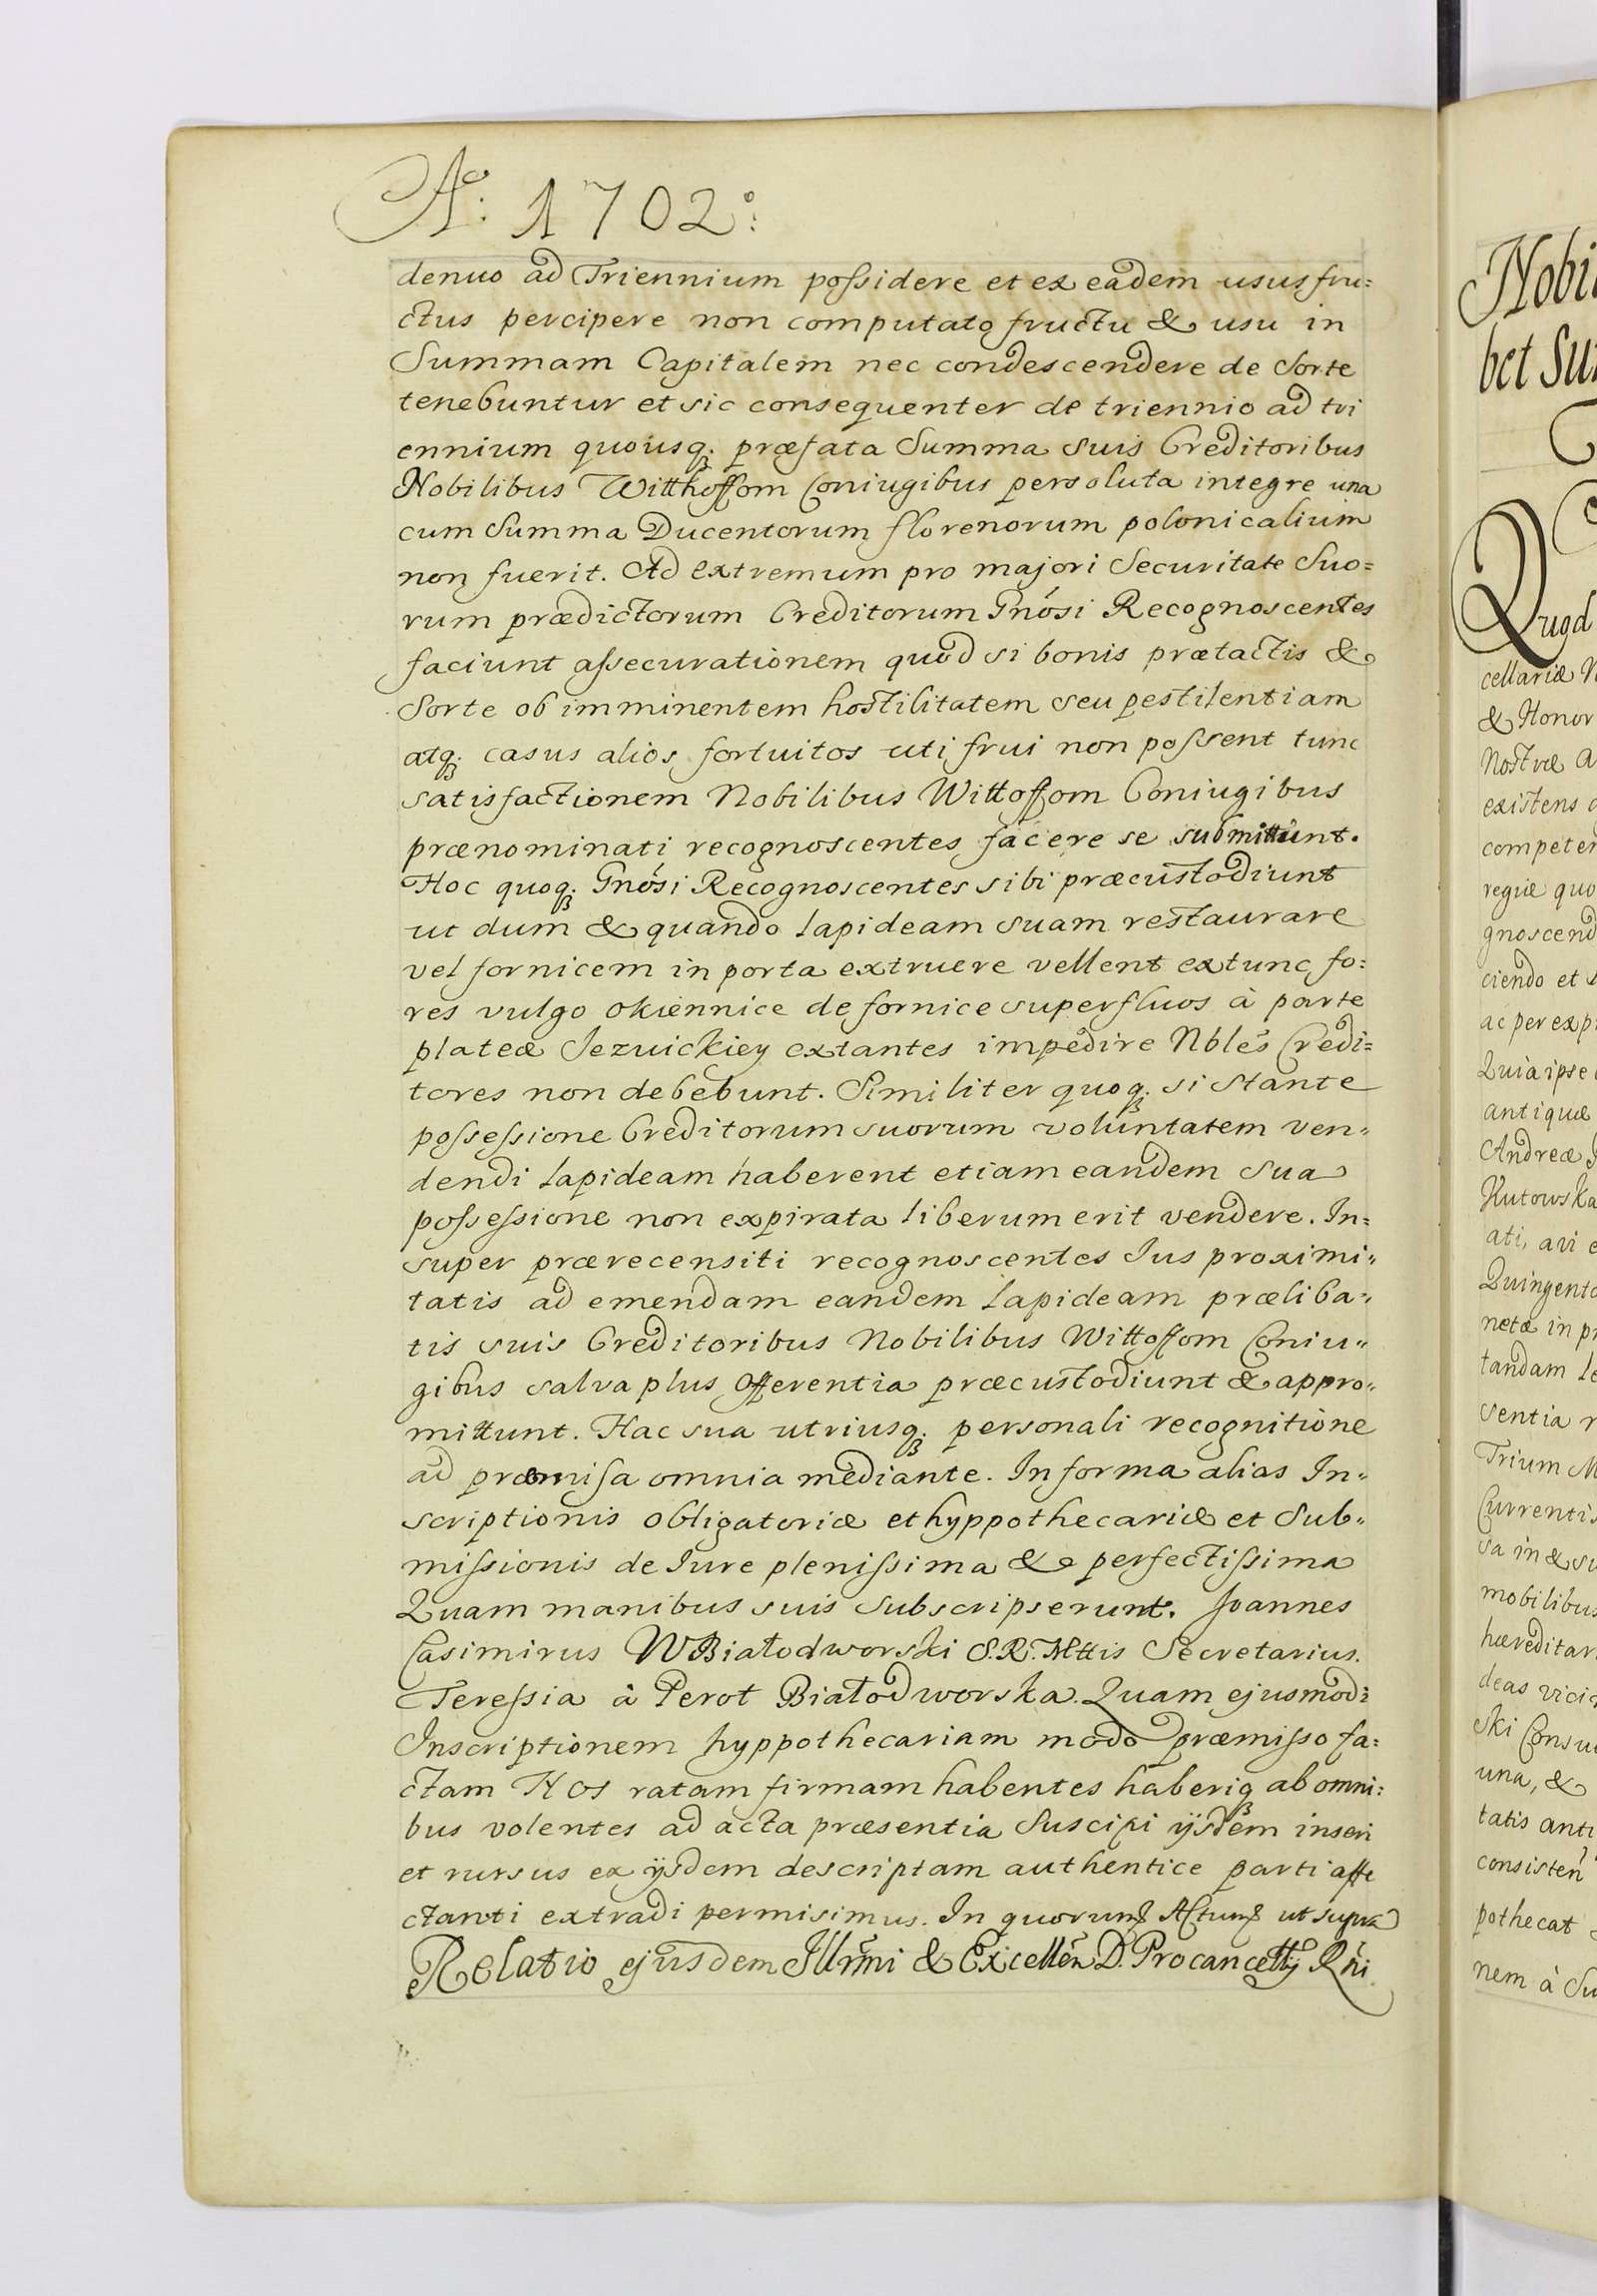 Aº: 1702º:
denuo ad Triennium possidere et ex eadem usus fru=
ctus percipere non computato fructu & usu in
Summam Capitalem nec condescendere de Sorte
tenebuntur et sic consequenter de triennio ad tri
ennium quousq; præfata Summa suis Creditoribus
Nobilibus Witthoffom Coniugibus persoluta integre una
cum Summa Ducentorum florenorum polonicalium
non fuerit. Ad extremum pro majori Securitate Suo=
rum prædictorum Creditorum Gnósi Recognoscentes
faciunt assecurationem quod si bonis prætactis &
Sorte ob imminentem hostilitatem seu pestilentiam
atq; casus alios fortuitos uti frui non possent tunc
satisfactionem Nobilibus Wittoffom Coniugibus
prænominati recognoscentes facere se submittunt.
Hoc quoq; Gnósi Recognoscentes sibi præcustodiunt
ut dum & quando lapideam suam restaurare
vel fornicem in porta extruere vellent extunc fo=
res vulgo okiennice de fornice superfluos à parte
plateæ Jezuickiey extantes impedire Nbles Credi=
tores non debebunt. Similiter quoq; si stante
possessione Creditorum suorum voluntatem ven=
dendi lapideam haberent etiam eandem sua
possessione non expirata liberum erit vendere. In=
super prærecensiti recognoscentes Jus proximi=
tatis ad emendam eandem lapideam præliba=
tis suis Creditoribus Nobilibus Wittoffom Coniu=
gibus salva plus Offerentia præcustodiunt & appro=
mittunt. Hac sua utriusq; personali recognitione
ad præmisa omnia mediante. In forma alias In=
scriptionis obligatoriæ et hyppothecariæ et Sub=
missionis de Jure plenissima & perfectissima
Quam manibus suis subscripserunt. Joannes
Casimirus WBiałodworski S.R.Mttis Secretarius.
Teressia à Perot Białodworska. Quam ejusmodi
Inscriptionem hyppothecariam modo præmisso fa=
ctam Nos ratam firmam habentes haberiq; ab omni=
bus volentes ad acta præsentia Suscipi ijsdem inseri
et rursus ex ijsdem descriptam authentice parti affe
ctanti extradi permisimus. In quorum Actum ut supra
Relatio ejusdem Illrmi & Excellen D. Procancellij Rni
Nobi
bet Su
Quod
cellariæ N
& Honor
Nostræ a
existens
competen
regiæ quo
gnoscend
ciendo et
ac per exp
Quia ipse
antiquæ
Andreæ
Kutowska
ati, avi
Quingento
netæ in pr
tandam le
sentia
Trium M
Currentis
sa in & su
mobilibus
hæreditar
deas vici
ski Consu
una, &
tatis anti
consisten
pothecat
nem à Su